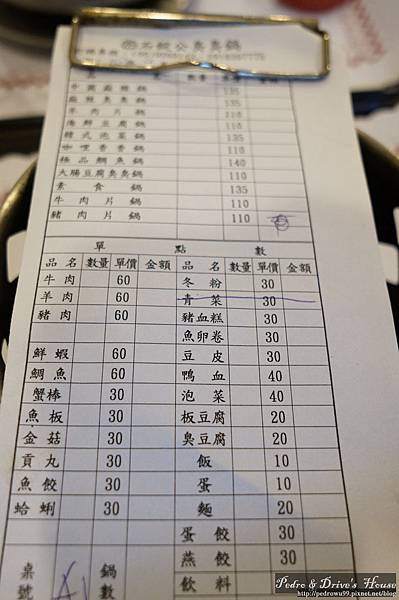 石敢公臭臭鍋
135
110
羊肉片鍋 110
海鮮豆腐鍋 110
韓式泡菜鍋 110
咖哩香香鍋 110
極品鯛魚鍋 140
大腸豆腐臭臭鍋 110
素食鍋 135
牛肉片鍋 110
豬肉片鍋 110
單點數
品名 數量 單價 金額 品名 數量 單價 金額
牛肉 60 冬粉 30
羊肉 60 青菜 30
豬肉 60 豬血糕 30
魚卵卷 30
鮮蝦 60 豆皮 30
鯛魚 60 鴨血 40
蟹棒 30 泡菜 40
魚板 30 板豆腐 20
金菇 30 臭豆腐 20
貢丸 30 飯 10
魚餃 30 蛋 10
蛤蜊 30 麵 20
蛋餃 30
燕餃 30
桌號 A1 鍋數 飲料
Pedro & Drive's House
http://pedrowu99.pixnet.net/blog